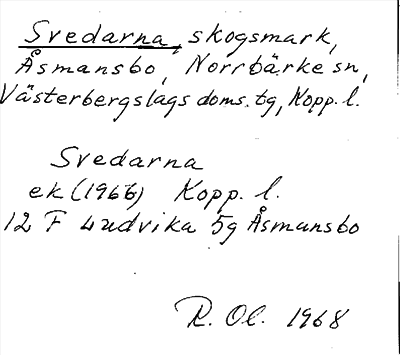 Svedarna, skogsmark,
Åsmansbo, Norrbärke sn,
Västerbergslags doms. tg, Kopp. l.
Svedarna
ek (1966) Kopp. l.
12 F Ludvika 5g Åsmansbo
R. Ol. 1968